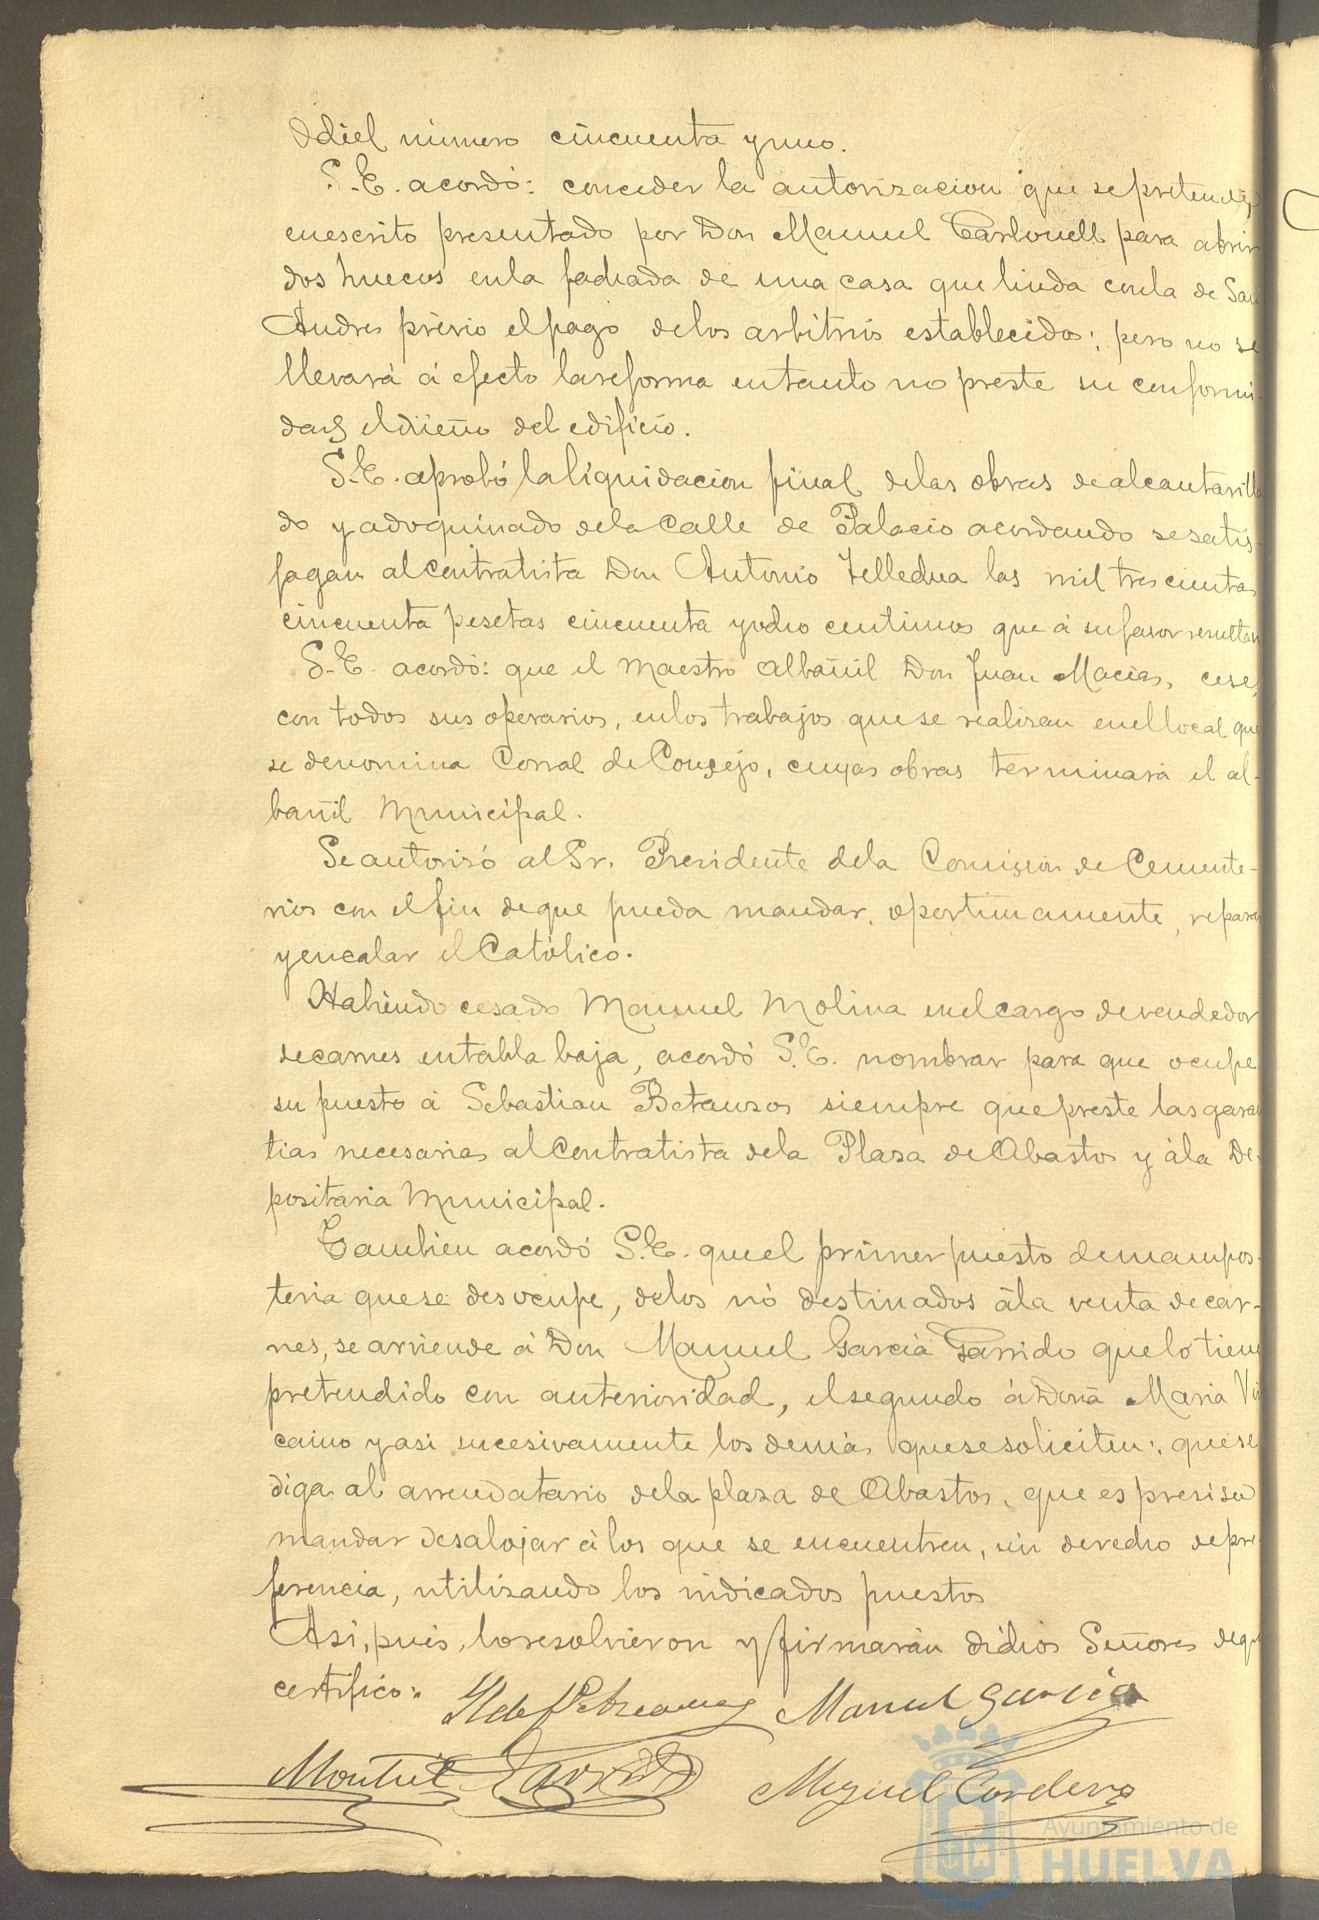 Odiel número cincuenta y uno.
S.E. acordó: conceder la autorizacion que se pretende
en escrito presentado por Don Manuel Carbonell para abrir
dos huecos en la fachada de una casa que linda con la de San
Andres prévio el pago de los arbitrios establecidos; pero no se
llevará á efecto la reforma en tanto no preste su conformi-
dad el dueño del edificio.
S.E. aprobó la liquidacion final de las obras de alcantarilla
do y adoquinado de la Calle de Palacio acordando se satis-
fagan al contratista Don Antonio las mil trescientas
cincuenta pesetas cincuenta y ocho centimos que á su favor resultan
S.E. acordó: que el maestro albañil Don Juan Macias, cese,
con todos sus operarios, en los trabajos que se realizan en el local que
se denomina Corral de Concejo, cuyas obras terminará el al-
bañil Municipal.
Se autorizó al Sr. Presidente de la Comision de Cemente-
rios con el fin de que pueda mandar, oportunamente, reparar
y encalar el Católico.
Habiendo cesado Manuel Molina en el cargo de vendedor
de carnes en tabla baja, acordó S.E. nombrar para que ocupe
su puesto á Sebastian Betanzos siempre que preste las garan
tias necesarias al contratista de la Plaza de Abastos y á la De-
positaria Municipal.
Tambien acordó S.E. que el primer puesto de mampos-
teria que se desocupe, de los nó destinados á la venta de car-
nes, se arriende á Don Manuel Garcia Garrido que ló tiene
pretendido con anterioridad, el segundo á Doña Maria Viz
caino y asi sucesivamente los demás que se soliciten; que se
diga al arrendatario de la plaza de Abastos, que es preciso
mandar desalojar á los que se encuentren, sin derecho de pre-
ferencia, utilizando los indicados puestos
Asi, pués, lo resolvieron y firmarán dichos Señores de que
certifico:
Manuel Garcia
Montiel Garrido Miguel Cordero
Ayuntamiento de
HUELVA